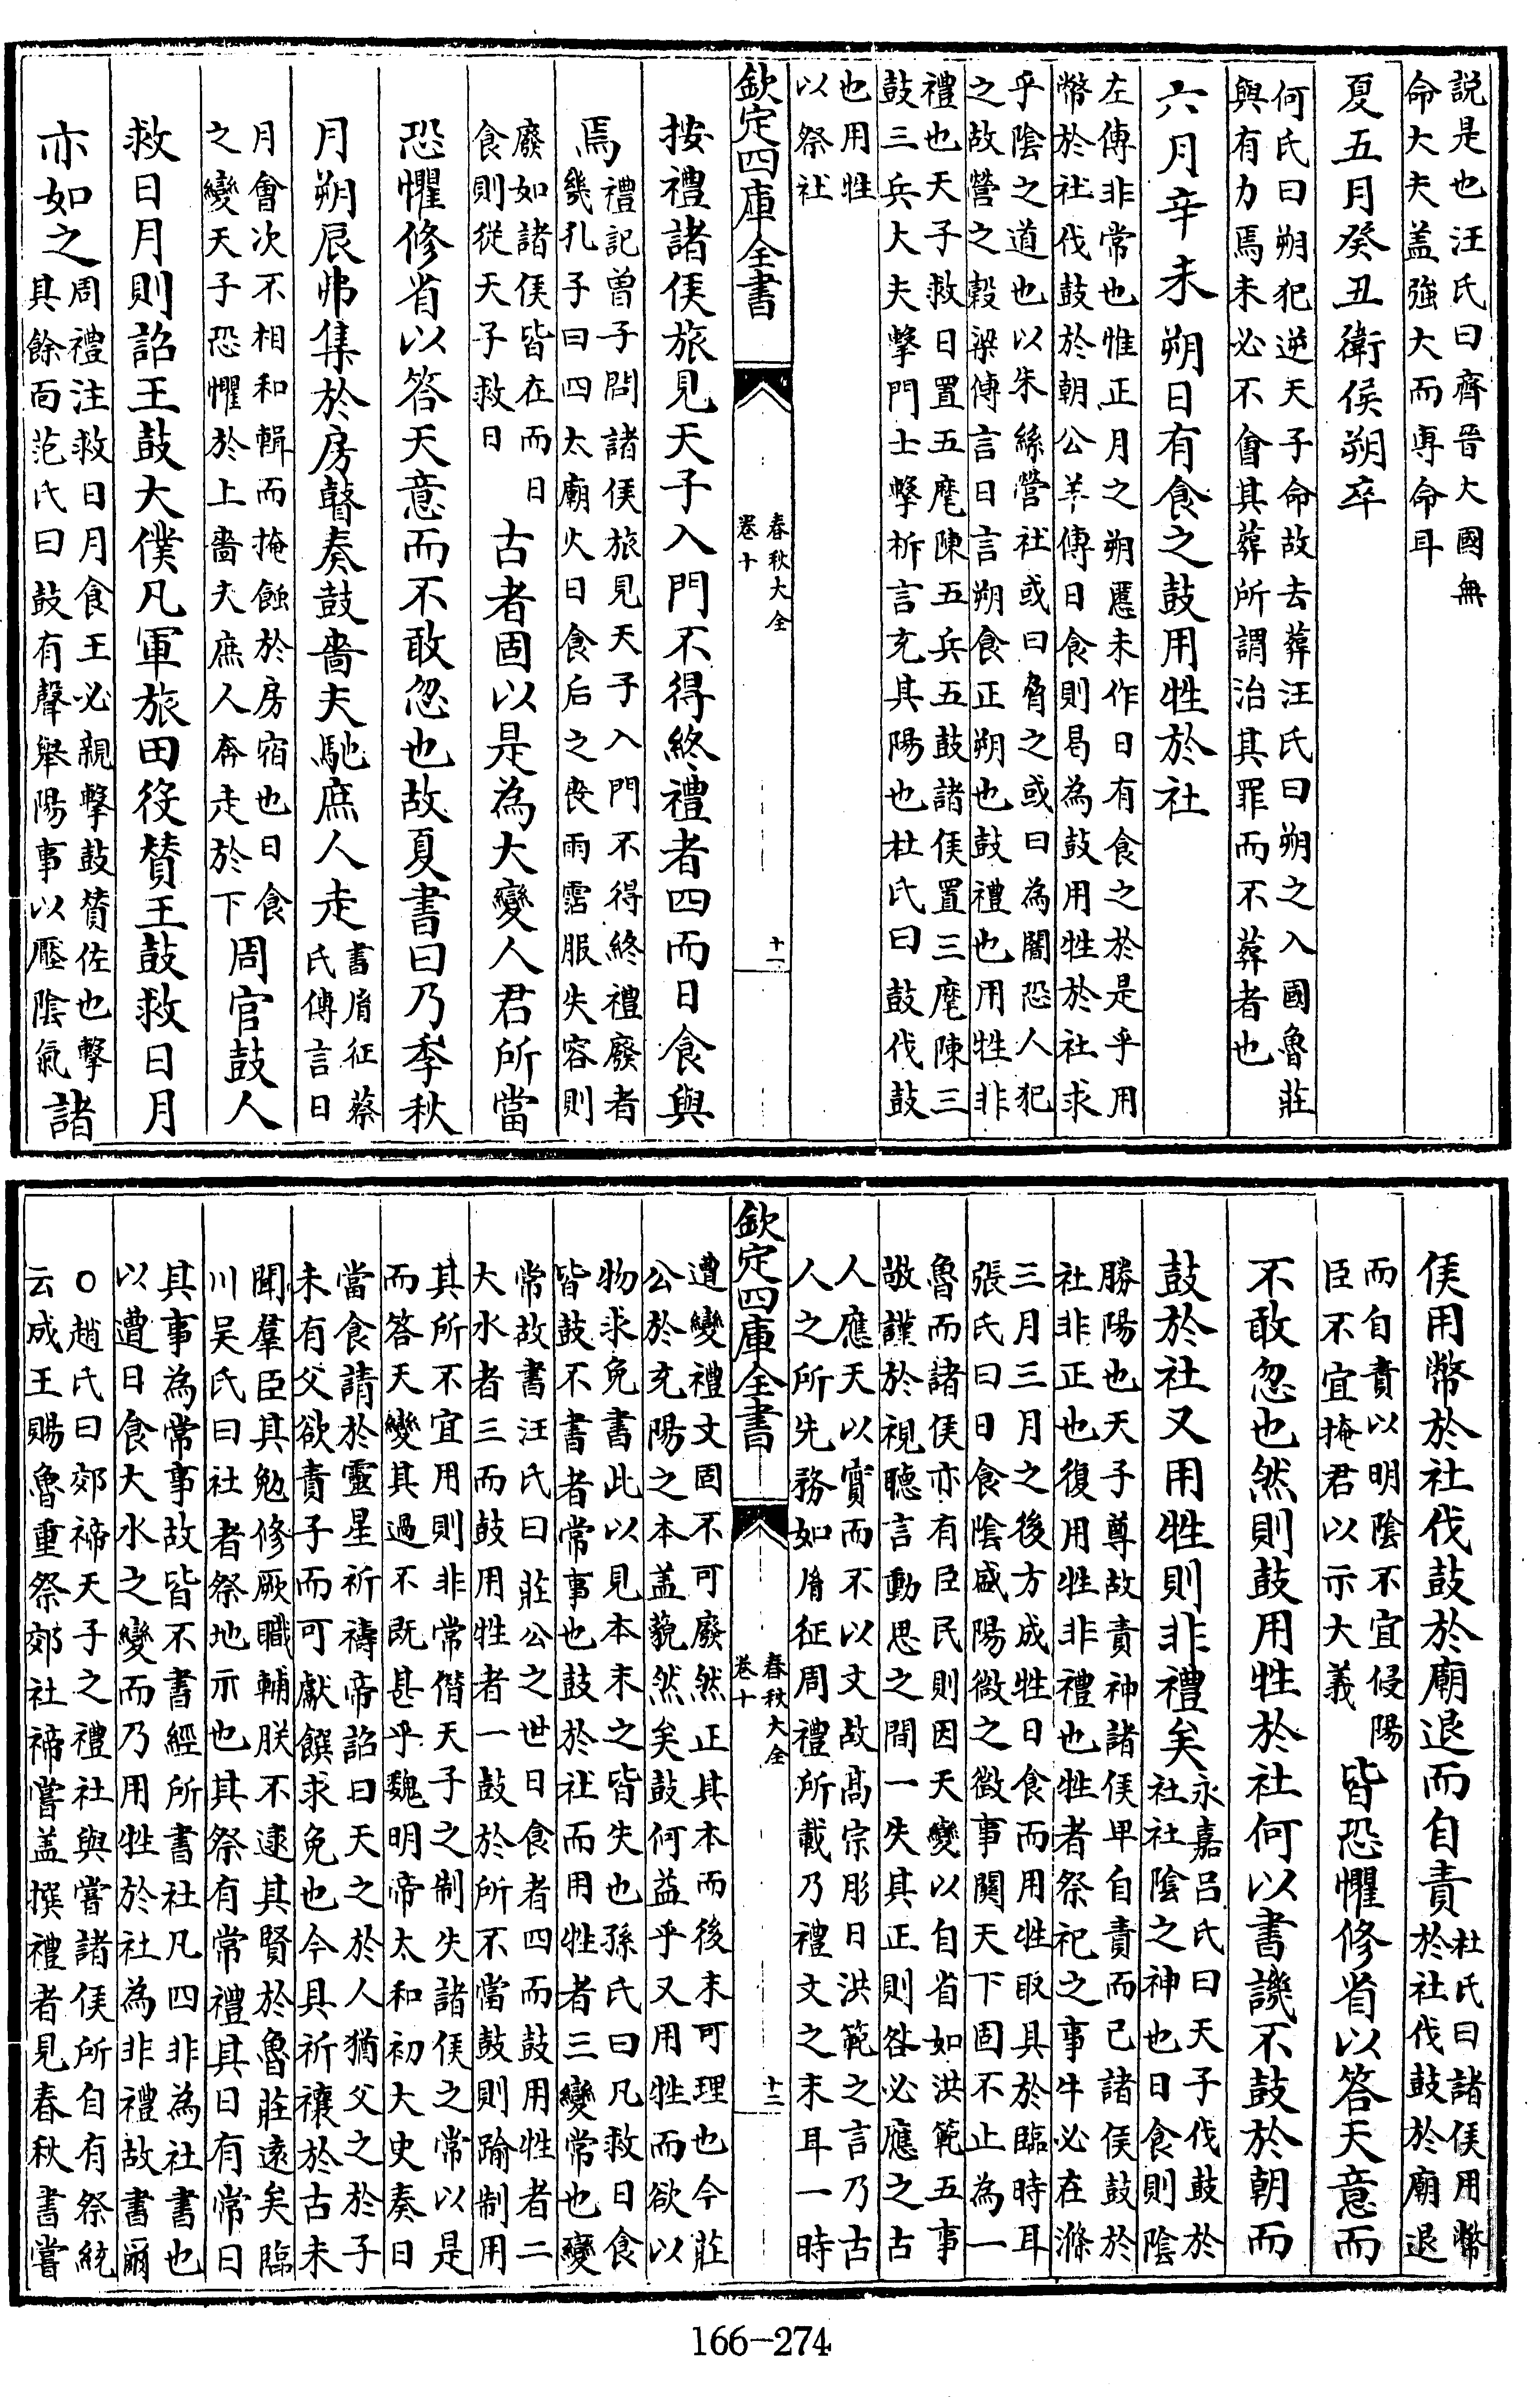 説是也汪氏曰齊晉大國無
命大夫盖強大而専命耳
夏五月癸丑衛侯朔卒
何氏曰朔犯逆天子命故去葬汪氏曰朔之入國魯莊
與有力焉未必不會其葬所謂治其罪而不葬者也
六月辛未朔日有食之鼓用牲於社
左傳非常也惟正月之朔慝未作日有食之於是乎用
幣於社伐鼓於朝公羊傳日食則曷為鼓用牲於社求
乎陰之道也以朱絲營社或曰脅之或曰為闇恐人犯
之故營之穀梁傳言日言朔食正朔也鼓禮也用牲非
禮也天子救日置五麾陳五兵五鼓諸侯置三麾陳三
鼓三兵大夫擊門士擊柝言充其陽也杜氏曰鼓伐鼓
也用牲
以祭社
欽定四庫全書
春秋大全
卷十
十一
按禮諸侯旅見天子入門不得終禮者四而日食與
焉
禮記曽子問諸侯旅見天子入門不得終禮廢者
幾孔子曰四太廟火日食后之喪雨霑服失容則
廢如諸侯皆在而日
食則從天子救日
古者固以是為大變人君所當
恐懼修省以答天意而不敢忽也故夏書曰乃季秋
月朔辰弗集於房瞽奏鼓嗇夫馳庶人走
書胤征蔡
氏傳言日
月會次不相和輯而掩蝕於房宿也日食
之變天子恐懼於上嗇夫庶人奔走於下
周官鼓人
救日月則詔王鼓大僕凡軍旅田役賛王鼓救日月
亦如之
周禮注救日月食王必親擊鼓賛佐也擊
其餘面范氏曰鼓有聲舉陽事以壓陰氣
諸
侯用幣於社伐鼓於廟退而自責
杜氏曰諸侯用幣
於社伐鼓於廟退
而自責以明陰不宜侵陽
臣不宜掩君以示大義
皆恐懼修省以答天意而
不敢忽也然則鼓用牲於社何以書譏不鼓於朝而
鼓於社又用牲則非禮矣
永嘉呂氏曰天子伐鼓於
社社陰之神也日食則陰
勝陽也天子尊故責神諸侯卑自責而已諸侯鼓於
社非正也復用牲非禮也牲者祭祀之事牛必在滌
三月三月之後方成牲日食而用牲取具於臨時耳
張氏曰日食陰盛陽微之徴事闗天下固不止為一
魯而諸侯亦有臣民則因天變以自省如洪範五事
敬謹於視聽言動思之間一失其正則咎必應之古
人應天以實而不以文故髙宗肜日洪範之言乃古
人之所先務如胤征周禮所載乃禮文之末耳一時
欽定四庫全書
春秋大全
卷十
十二
遭變禮文固不可廢然正其本而後末可理也今莊
公於充陽之本盖藐然矣鼓何益乎又用牲而欲以
物求免書此以見本末之皆失也孫氏曰凡救日食
皆鼓不書書者常事也鼓於社而用牲者三變常也變
常故書汪氏曰莊公之世日食者四而鼓用牲者二
大水者三而鼓用牲者一鼓於所不當鼓則踰制用
其所不宜用則非常僭天子之制失諸侯之常以是
而答天變其過不既甚乎魏明帝太和初大史奏日
當食請於靈星祈禱帝詔曰天之於人猶父之於子
未有父欲責子而可獻饌求免也今具祈禳於古未
聞羣臣其勉修厥職輔朕不逮其賢於魯莊遠矣臨
川吴氏曰社者祭地示也其祭有常禮其日有常日
其事為常事故皆不書經所書社凡四非為社書也
以遭日食大水之變而乃用牲於社為非禮故書爾
○趙氏曰郊禘天子之禮社與嘗諸侯所自有祭統
云成王賜魯重祭郊社禘嘗盖撰禮者見春秋書嘗
166-274